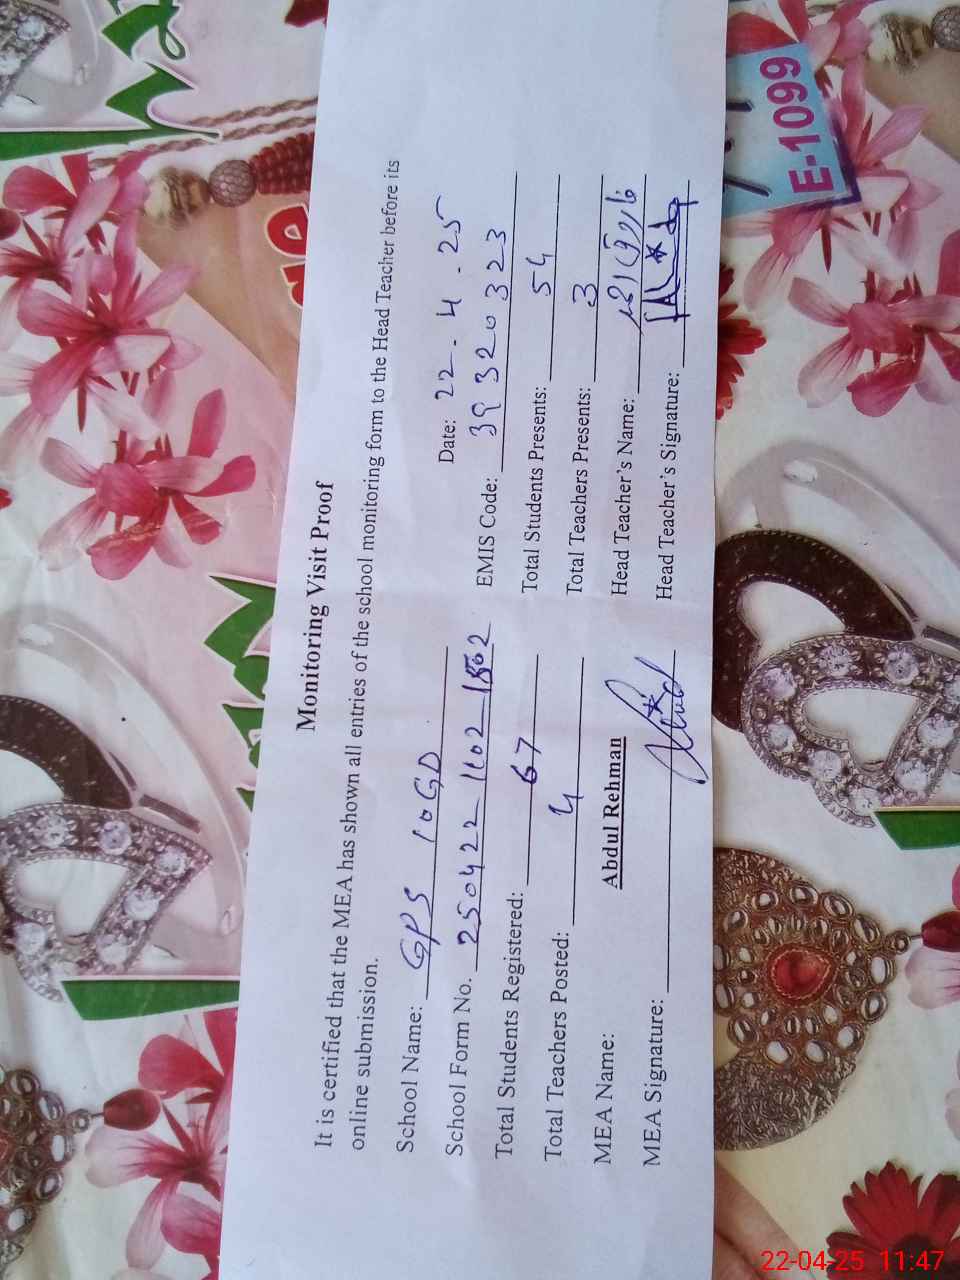 Monitoring Visit Proof
It is certified that the MEA has shown all entries of the school monitoring form to the Head Teacher before its
online submission.
Date: 22.4.25
School Name: GPS 10GD
EMIS Code: 39320323
School Form No. 250422 1102 1802
Total Students Presents: 54
Total Students Registered: 67
Total Teachers Presents: 3
Total Teachers Posted: 4
Head Teacher's Name:
MEA Name: Abdul Rehman
Head Teacher's Signature:
MEA Signature:
E-1099
22-04-25 11:47